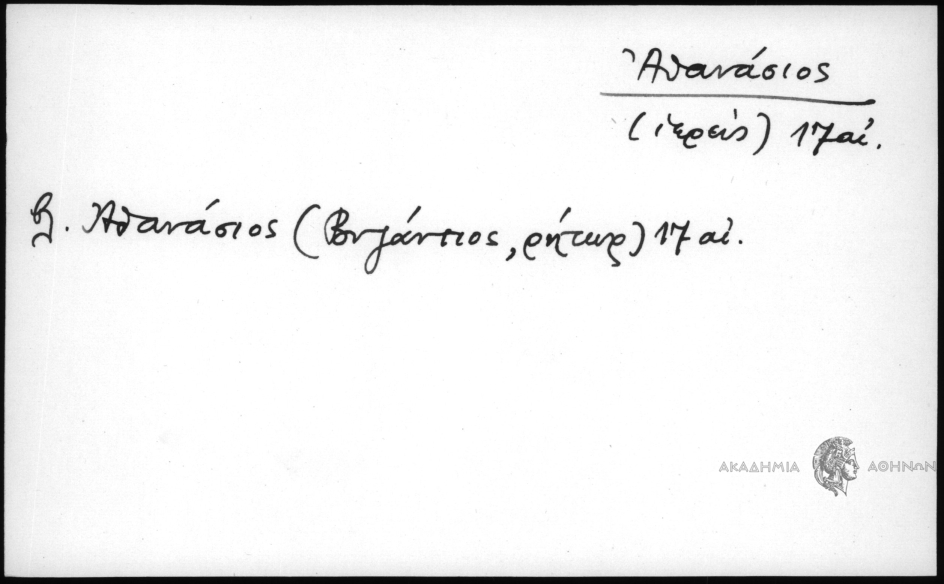 Ἀθανάσιος
(ἱερεύς) 17 αἰ.
β. Ἀθανάσιος (Βυζάντιος, ρήτωρ) 17 αἰ.
ΑΚΑΔΗΜΙΑ ΑΘΗΝΩΝ